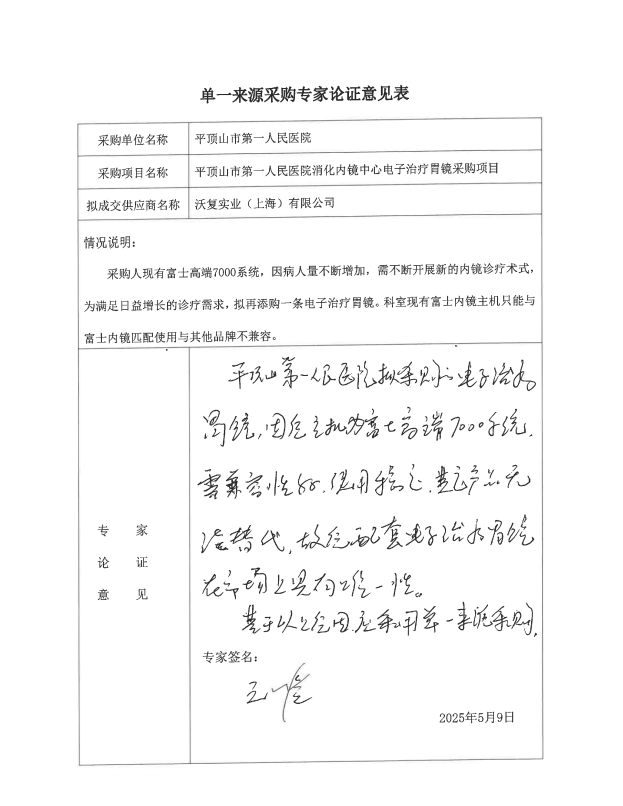 单一来源采购专家论证意见表
采购单位名称 平顶山市第一人民医院
采购项目名称 平顶山市第一人民医院消化内镜中心电子治疗胃镜采购项目
拟成交供应商名称 沃复实业（上海）有限公司
情况说明：
采购人现有富士高端7000系统，因病人量不断增加，需不断开展新的内镜诊疗术式，
为满足日益增长的诊疗需求，拟再添购一条电子治疗胃镜。科室现有富士内镜主机只能与
富士内镜匹配使用与其他品牌不兼容。
专家
论证
意见
平顶山第一人民医院拟采购的电子治疗
胃镜，因主机为富士高端7000系统，
需兼容性好，使用稳定，其它产品无
法替代，故配套电子治疗胃镜
在市场上具有唯一性。
基于以上原因，应采用单一来源采购。
专家签名：
2025年5月9日